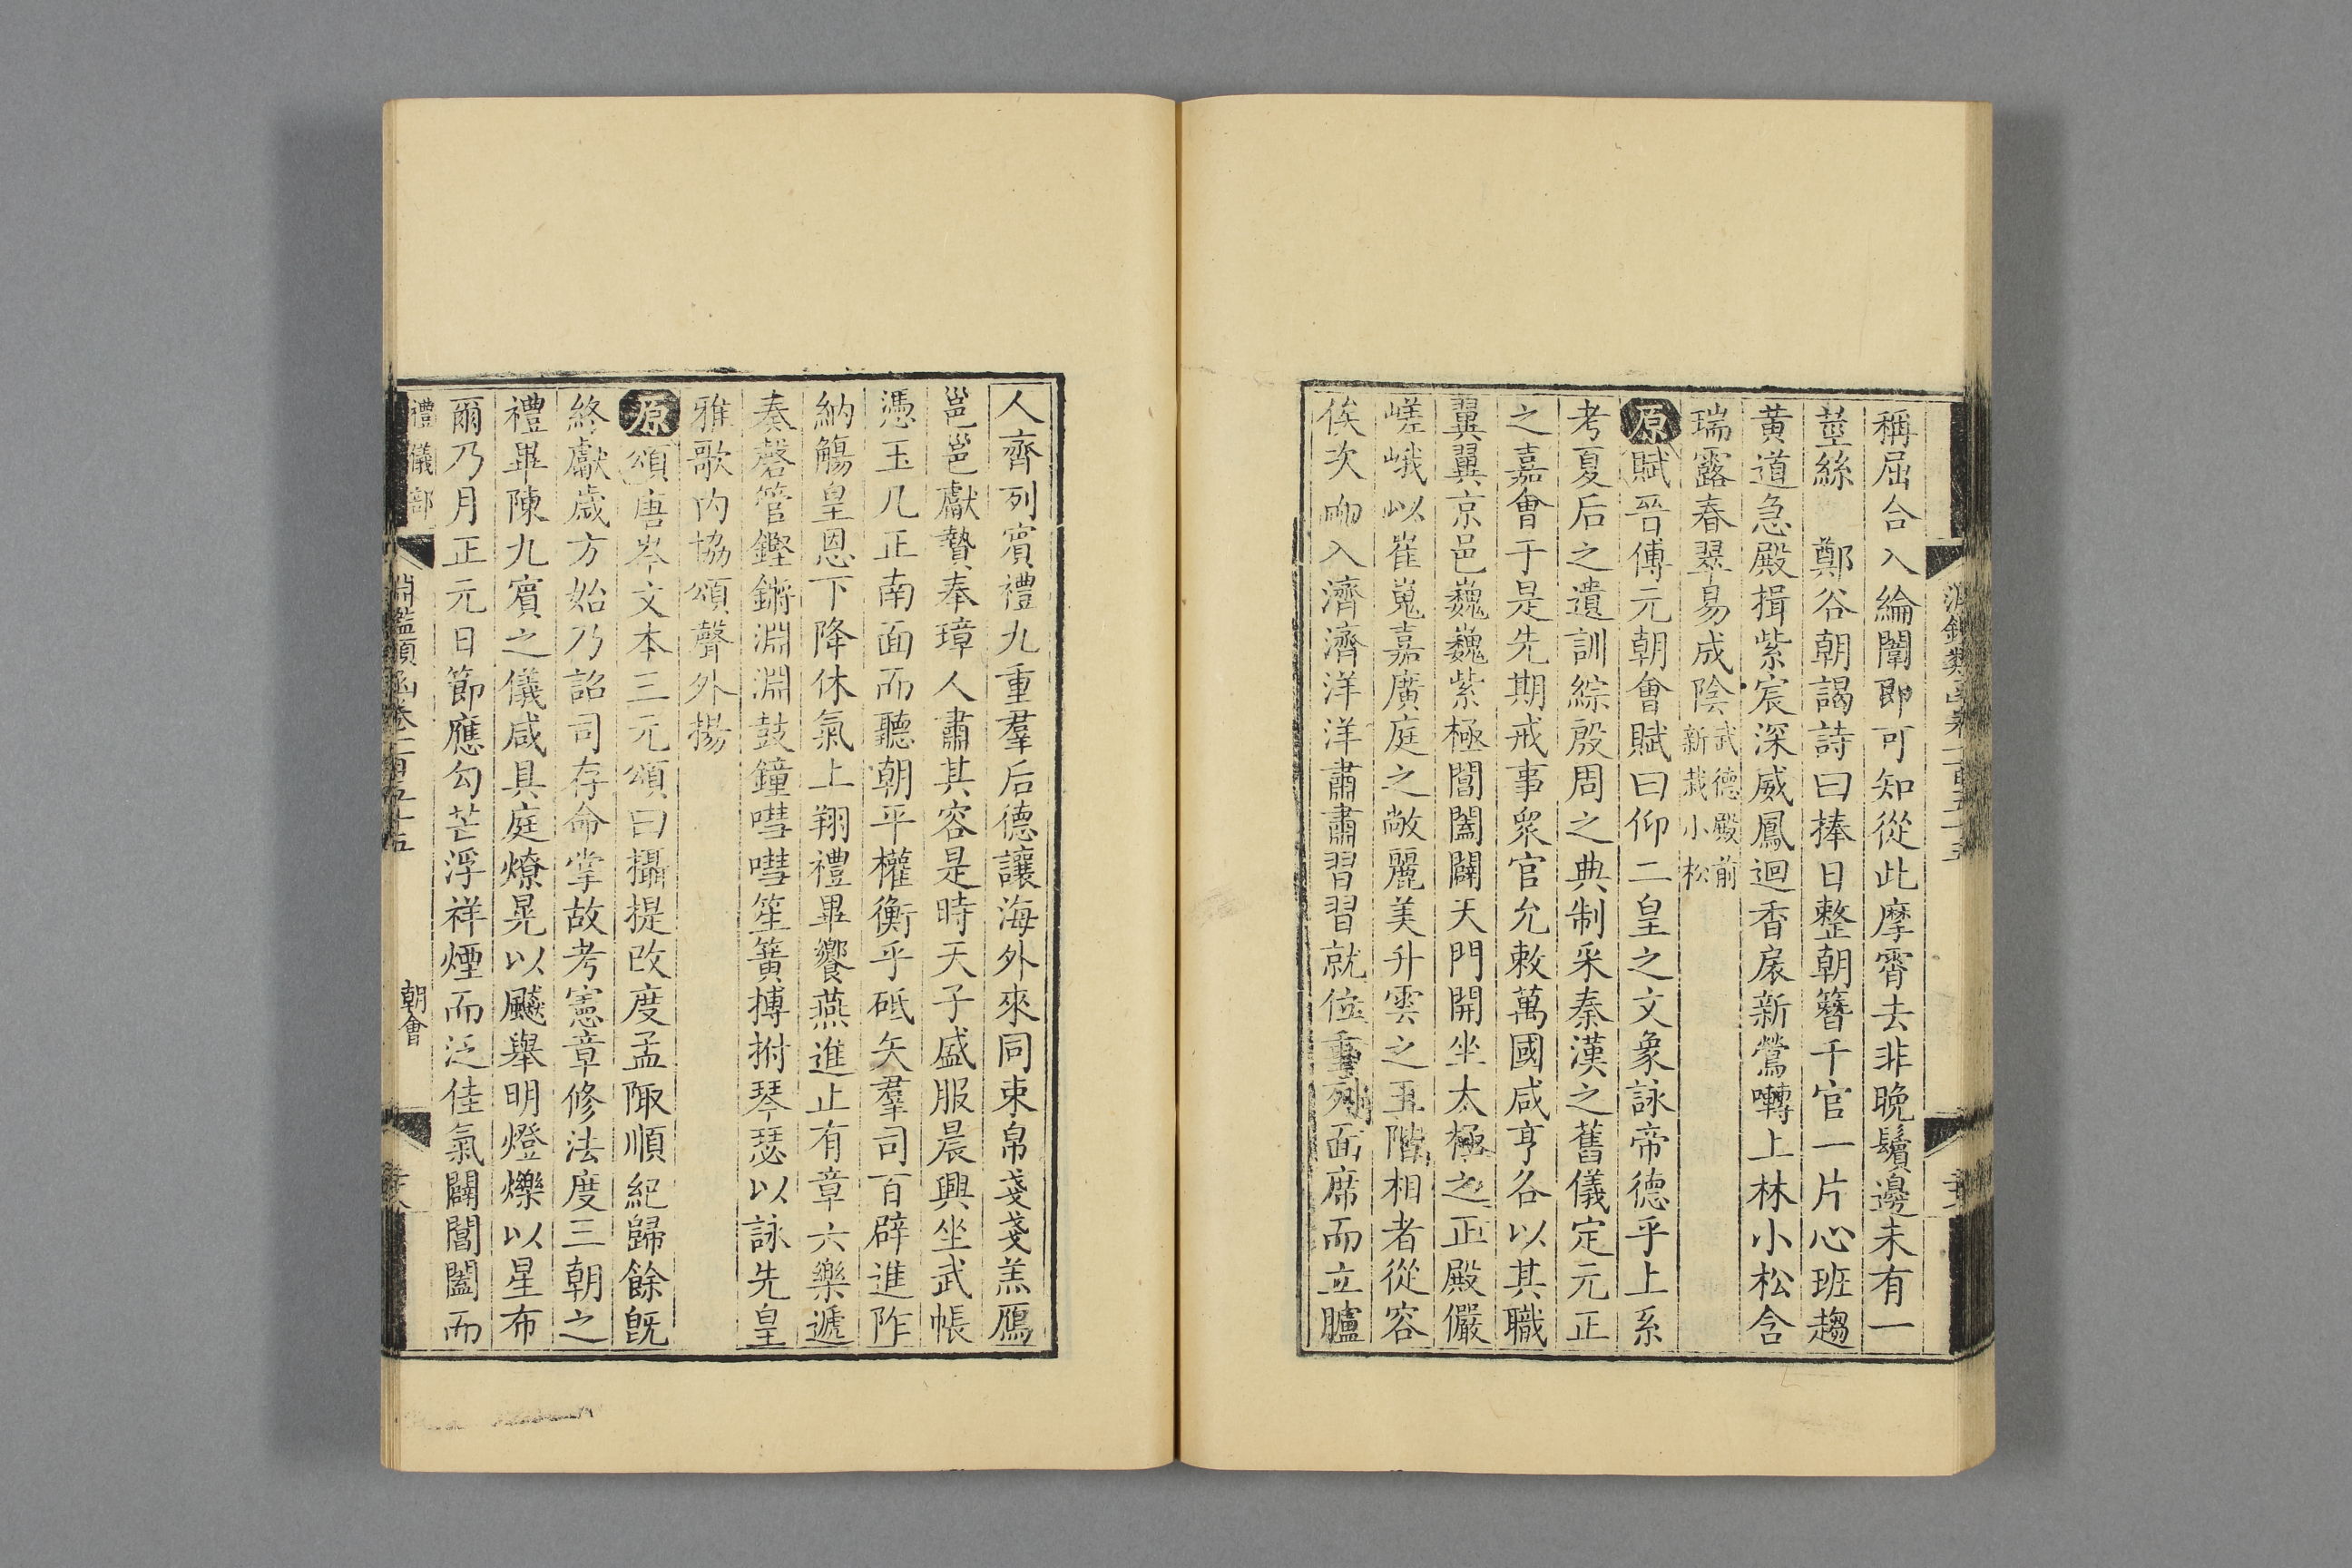 稱屈合入綸闈即可知從此摩霄去非晚鬢邊未有一
莖絲　鄭谷朝謁詩曰捧日整朝簪千官一片心班趨
黃道急殿揖紫宸深威鳳迴香扆新鶯囀上林小松含
瑞露春翠易成陰武德殿前新栽小松
原賦晉傅元朝會賦曰仰二皇之文象詠帝德乎上系
考夏后之遺訓綜殷周之典制采秦漢之舊儀定元正
之嘉會于是先期戒事眾官允敕萬國咸亨各以其職
翼翼京邑巍巍紫極閶闔闢天門開坐太極之正殿儼
嵯峨以崔嵬嘉廣庭之敞麗美升雲之玉階相者從容
俟次而入濟濟洋洋肅肅習習就位重列面席而立臚
人齊列賓禮九重羣后德讓海外來同束帛戔戔羔鴈
邕邕獻贄奉璋人肅其容是時天子盛服晨興坐武帳
憑玉几正南面而聽朝平權衡乎砥矢羣司百辟進阼
納觴皇恩下降休氣上翔禮畢饗燕進止有章六樂遞
奏磬管鏗鏘淵淵鼓鐘嘒嘒笙簧搏拊琴瑟以詠先皇
雅歌內協頌聲外揚
原頌唐岑文本三元頌曰攝提改度孟陬順紀歸餘旣
終獻歲方始乃詔司存命掌故考憲章修法度三朝之
禮畢陳九賓之儀咸具庭燎晃以飈舉明燈爍以星布
爾乃月正元日節應勾芒浮祥煙而泛佳氣闢閶闔而
禮儀部　淵鑑類函卷一百五十五　朝會